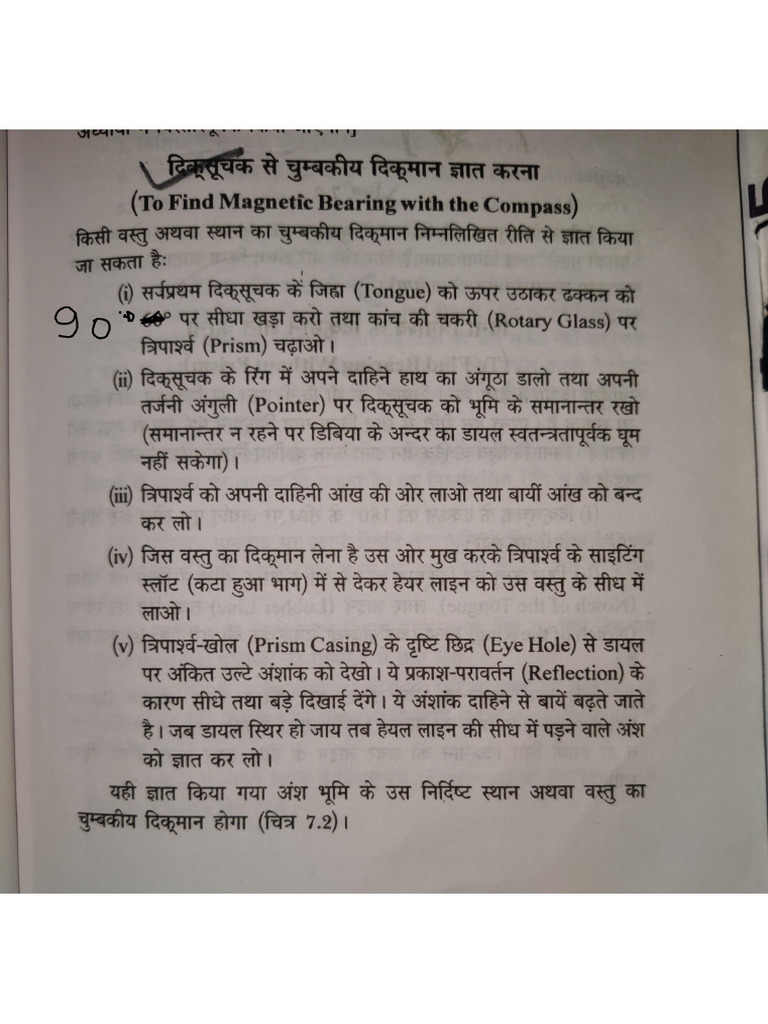 दिक्सूचक से चुम्बकीय दिक्मान ज्ञात करना
(To Find Magnetic Bearing with the Compass)
किसी वस्तु अथवा स्थान का चुम्बकीय दिक्मान निम्नलिखित रीति से ज्ञात किया
जा सकता हैः
(i) सर्वप्रथम दिक्सूचक कें जिह्वा (Tongue) को ऊपर उठाकर ढक्कन को
90° पर सीधा खड़ा करो तथा कांच की चकरी (Rotary Glass) पर
त्रिपार्श्व (Prism) चढ़ाओ।
(ii) दिक्सूचक के रिंग में अपने दाहिने हाथ का अंगूठा डालो तथा अपनी
तर्जनी अंगुली (Pointer) पर दिक्सूचक को भूमि के समानान्तर रखो
(समानान्तर न रहने पर डिबिया के अन्दर का डायल स्वतन्त्रतापूर्वक घूम
नहीं सकेगा)।
(iii) त्रिपार्श्व को अपनी दाहिनी आंख की ओर लाओ तथा बायीं आंख को बन्द
कर लो।
(iv) जिस वस्तु का दिक्मान लेना है उस ओर मुख करके त्रिपार्श्व के साइटिंग
स्लॉट (कटा हुआ भाग) में से देकर हेयर लाइन को उस वस्तु के सीध में
लाओ।
(v) त्रिपार्श्व-खोल (Prism Casing) के दृष्टि छिद्र (Eye Hole) से डायल
पर अंकित उल्टे अंशांक को देखो। ये प्रकाश-परावर्तन (Reflection) के
कारण सीधे तथा बड़े दिखाई देंगे। ये अंशांक दाहिने से बायें बढ़ते जाते
है। जब डायल स्थिर हो जाय तब हेयल लाइन की सीध में पड़ने वाले अंश
को ज्ञात कर लो।
यही ज्ञात किया गया अंश भूमि के उस निर्दिष्ट स्थान अथवा वस्तु का
चुम्बकीय दिक्मान होगा (चित्र 7.2)।